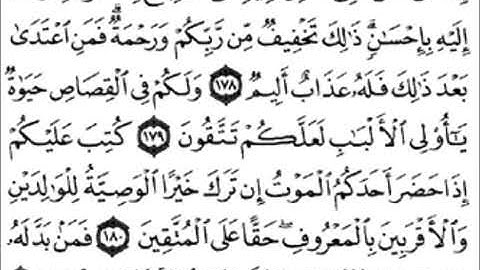 إِلَيْهِ بِإِحْسَٰنٍۗ ذَٰلِكَ تَخْفِيفٌ مِّن رَّبِّكُمْ وَرَحْمَةٌۗ فَمَنِ ٱعْتَدَىٰ
بَعْدَ ذَٰلِكَ فَلَهُۥ عَذَابٌ أَلِيمٌ ١٧٨ وَلَكُمْ فِى ٱلْقِصَاصِ حَيَوٰةٌ
يَٰٓأُو۟لِى ٱلْأَلْبَٰبِ لَعَلَّكُمْ تَتَّقُونَ ١٧٩ كُتِبَ عَلَيْكُمْ
إِذَا حَضَرَ أَحَدَكُمُ ٱلْمَوْتُ إِن تَرَكَ خَيْرًا ٱلْوَصِيَّةُ لِلْوَٰلِدَيْنِ
وَٱلْأَقْرَبِينَ بِٱلْمَعْرُوفِۖ حَقًّا عَلَى ٱلْمُتَّقِينَ ١٨٠ فَمَنۢ بَدَّلَهُۥ